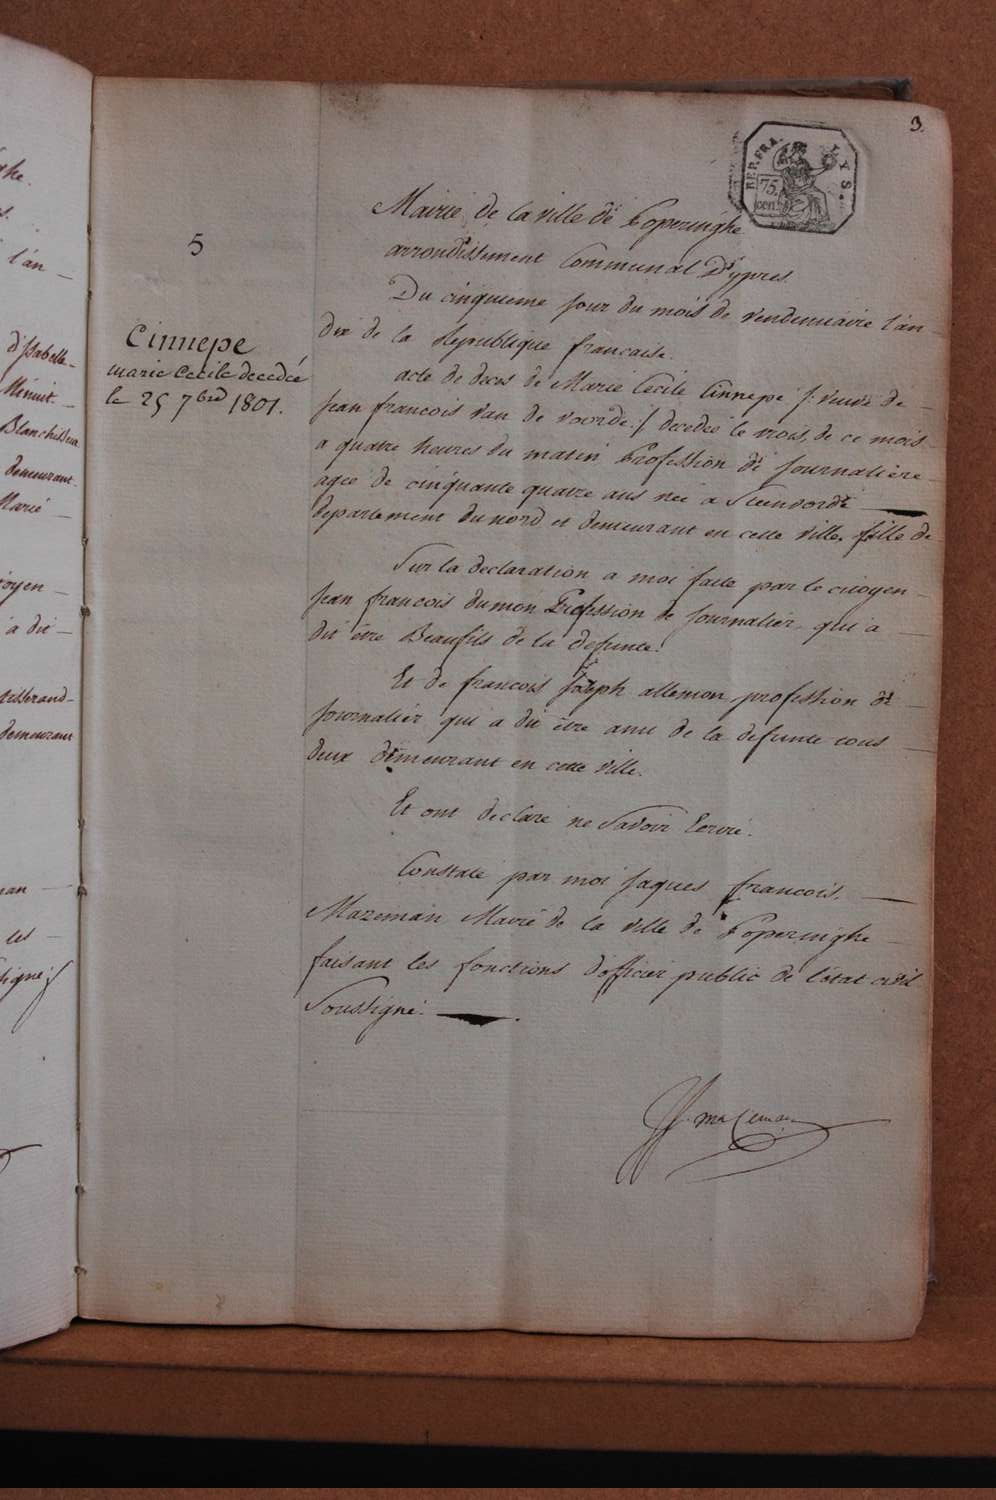 ghe.
s.
l'an —
d'Isabelle —
Minuit. —
Blanchisseur
demeurant.
Marie —
toyen —
a dit —
tisserand —
demeurant
man —
les —
signé ./
3.
REP. FRA.
LYS.
75.
cen.
5
Cinnepe
marie Cecile decedée
le 25 7bre 1801.
Mairie de la ville de Poperinghe
arrondissement Communal D'ypres.
Du cinquieme jour du mois de vendemiaire l'an —
dix de la Republique francaise.
acte de deces de Marie Cecile Cinnepe /: veuve de —
Jean francois van de voorde :/ decedée le trois de ce mois —
a quatre heures du matin Profession de journaliere —
agée de cinquante quatre ans née a Steenvorde —
departement du nord et demeurant en cette ville, fille de
Sur la declaration a moi faite par le citoyen —
Jean francois dumon Profession de journalier, qui a —
dit être Beaufils de la defunte.
Et de francois Joseph allemon profession de —
journalier qui a dit être ami de la defunte tous —
deux demeurant en cette ville.
Et ont declaré ne savoir Ecrire.
Constaté par moi jaques francois —
Mazeman Maire de la ville de Poperinghe —
faisant les fonctions d'officier public de l'état civil
Soussigné. —
JJ. mazeman